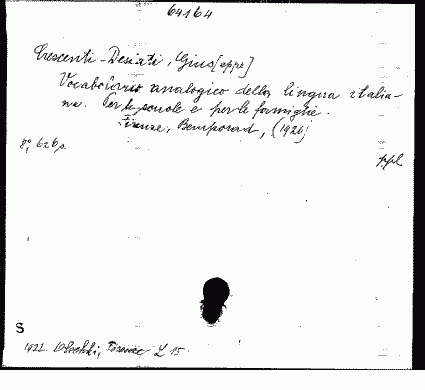 64164
Crescenti-Desiati, Gius[eppe]
Vocabolario analogico della lingua italia-
na. Per le scuole e per le famiglie.
Firenze, Bemporad, (1920)
8°, 626 p.
ppl
S
1922 Olschki, Florence L 15